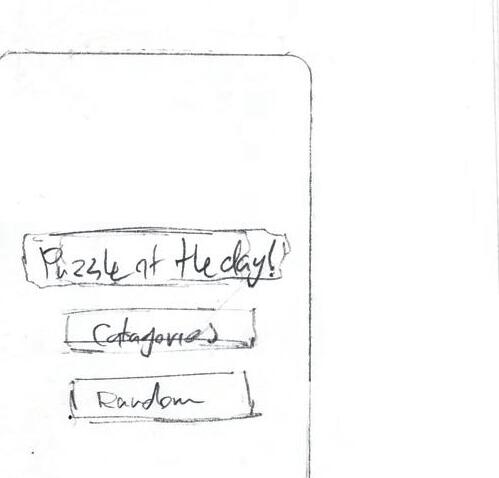 Puzzle of the day!
Catagories
Random